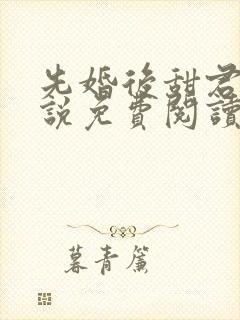 先婚後甜君
說免費閱讀
暮青簾